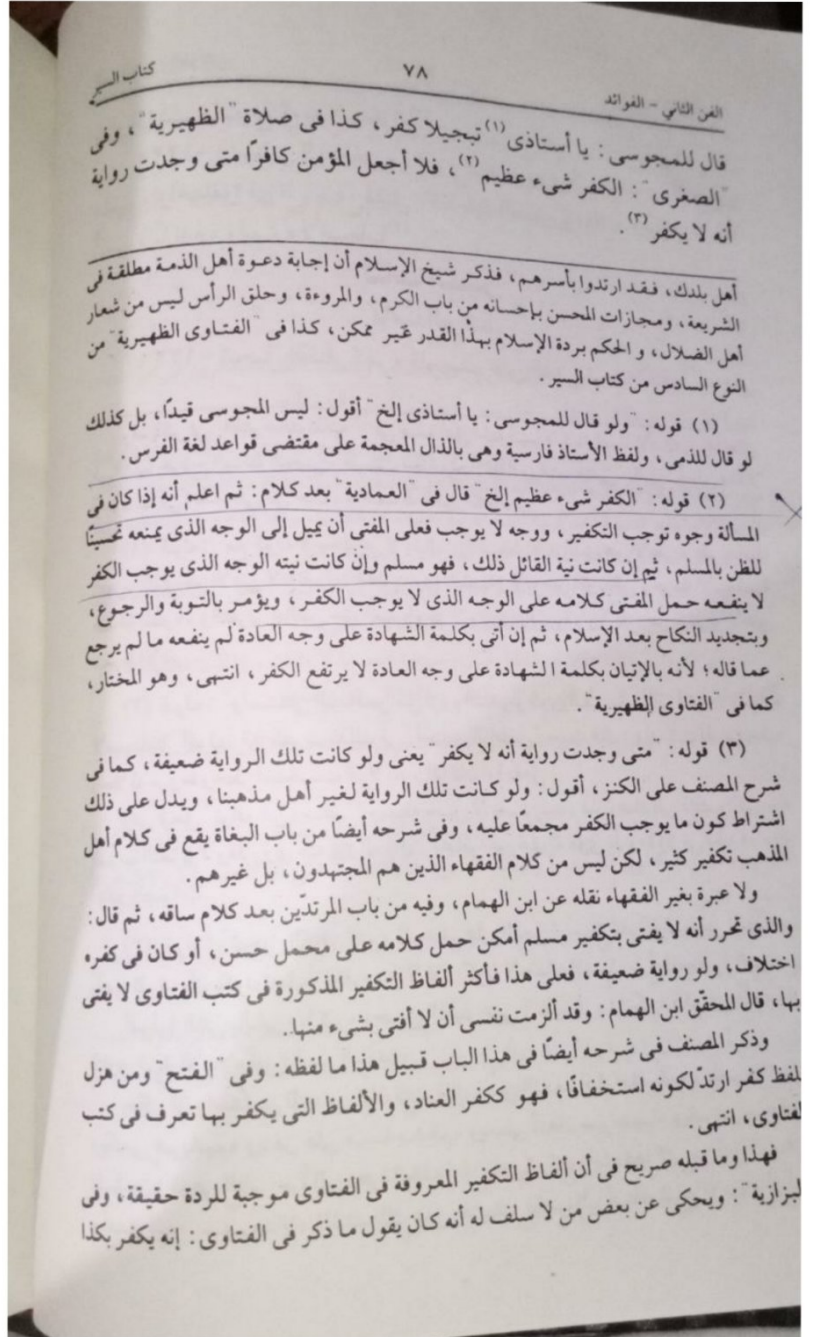 الفن الثاني - الفوائد ٧٨ كتاب السير
قال للمجوسى: يا أستاذى(١) تبجيلا كفر، كذا فى صلاة "الظهيرية"، وفى
"الصغرى": الكفر شىء عظيم(٢)، فلا أجعل المؤمن كافرًا متى وجدت رواية
أنه لا يكفر(٣).
أهل بلدك، فقد ارتدوا بأسرهم، فذكر شيخ الإسلام أن إجابة دعوة أهل الذمة مطلقة فى
الشريعة، ومجازات المحسن بإحسانه من باب الكرم، والمروءة، وحلق الرأس ليس من شعار
أهل الضلال، و الحكم بردة الإسلام بهذا القدر غير ممكن، كذا فى "الفتاوى الظهيرية" من
النوع السادس من كتاب السير.
(١) قوله: "ولو قال للمجوسى: يا أستاذى إلخ" أقول: ليس المجوسى قيدًا، بل كذلك
لو قال للذمى، ولفظ الأستاذ فارسية وهى بالذال المعجمة على مقتضى قواعد لغة الفرس.
(٢) قوله: "الكفر شىء عظيم إلخ" قال فى "العمادية" بعد كلام: ثم اعلم أنه إذا كان فى
المسألة وجوه توجب التكفير، ووجه لا يوجب فعلى المفتى أن يميل إلى الوجه الذى يمنعه تحسينًا
للظن بالمسلم، ثم إن كانت نية القائل ذلك، فهو مسلم وإن كانت نيته الوجه الذى يوجب الكفر
لا ينفعه حمل المفتى كلامه على الوجه الذى لا يوجب الكفر، ويؤمر بالتوبة والرجوع،
وبتجديد النكاح بعد الإسلام، ثم إن أتى بكلمة الشهادة على وجه العادة لم ينفعه ما لم يرجع
عما قاله؛ لأنه بالإتيان بكلمة الشهادة على وجه العادة لا يرتفع الكفر، انتهى، وهو المختار،
كما فى "الفتاوى الظهيرية".
(٣) قوله: "متى وجدت رواية أنه لا يكفر" يعنى ولو كانت تلك الرواية ضعيفة، كما فى
شرح المصنف على الكنز، أقول: ولو كانت تلك الرواية لغير أهل مذهبنا، ويدل على ذلك
اشتراط كون ما يوجب الكفر مجمعًا عليه، وفى شرحه أيضًا من باب البغاة يقع فى كلام أهل
المذهب تكفير كثير، لكن ليس من كلام الفقهاء الذين هم المجتهدون، بل غيرهم.
ولا عبرة بغير الفقهاء نقله عن ابن الهمام، وفيه من باب المرتدّين بعد كلام ساقه، ثم قال:
والذى تحرر أنه لا يفتى بتكفير مسلم أمكن حمل كلامه على محمل حسن، أو كان فى كفره
اختلاف، ولو رواية ضعيفة، فعلى هذا فأكثر ألفاظ التكفير المذكورة فى كتب الفتاوى لا يفتى
بها، قال المحقّق ابن الهمام: وقد ألزمت نفسى أن لا أفتى بشىء منها.
وذكر المصنف فى شرحه أيضًا فى هذا الباب قبيل هذا ما لفظه: وفى "الفتح" ومن هزل
بلفظ كفر ارتدّ لكونه استخفافًا، فهو ككفر العناد، والألفاظ التى يكفر بها تعرف فى كتب
الفتاوى، انتهى.
فهذا وما قبله صريح فى أن ألفاظ التكفير المعروفة فى الفتاوى موجبة للردة حقيقة، وفى
البزازية": ويحكى عن بعض من لا سلف له أنه كان يقول ما ذكر فى الفتاوى: إنه يكفر بكذا